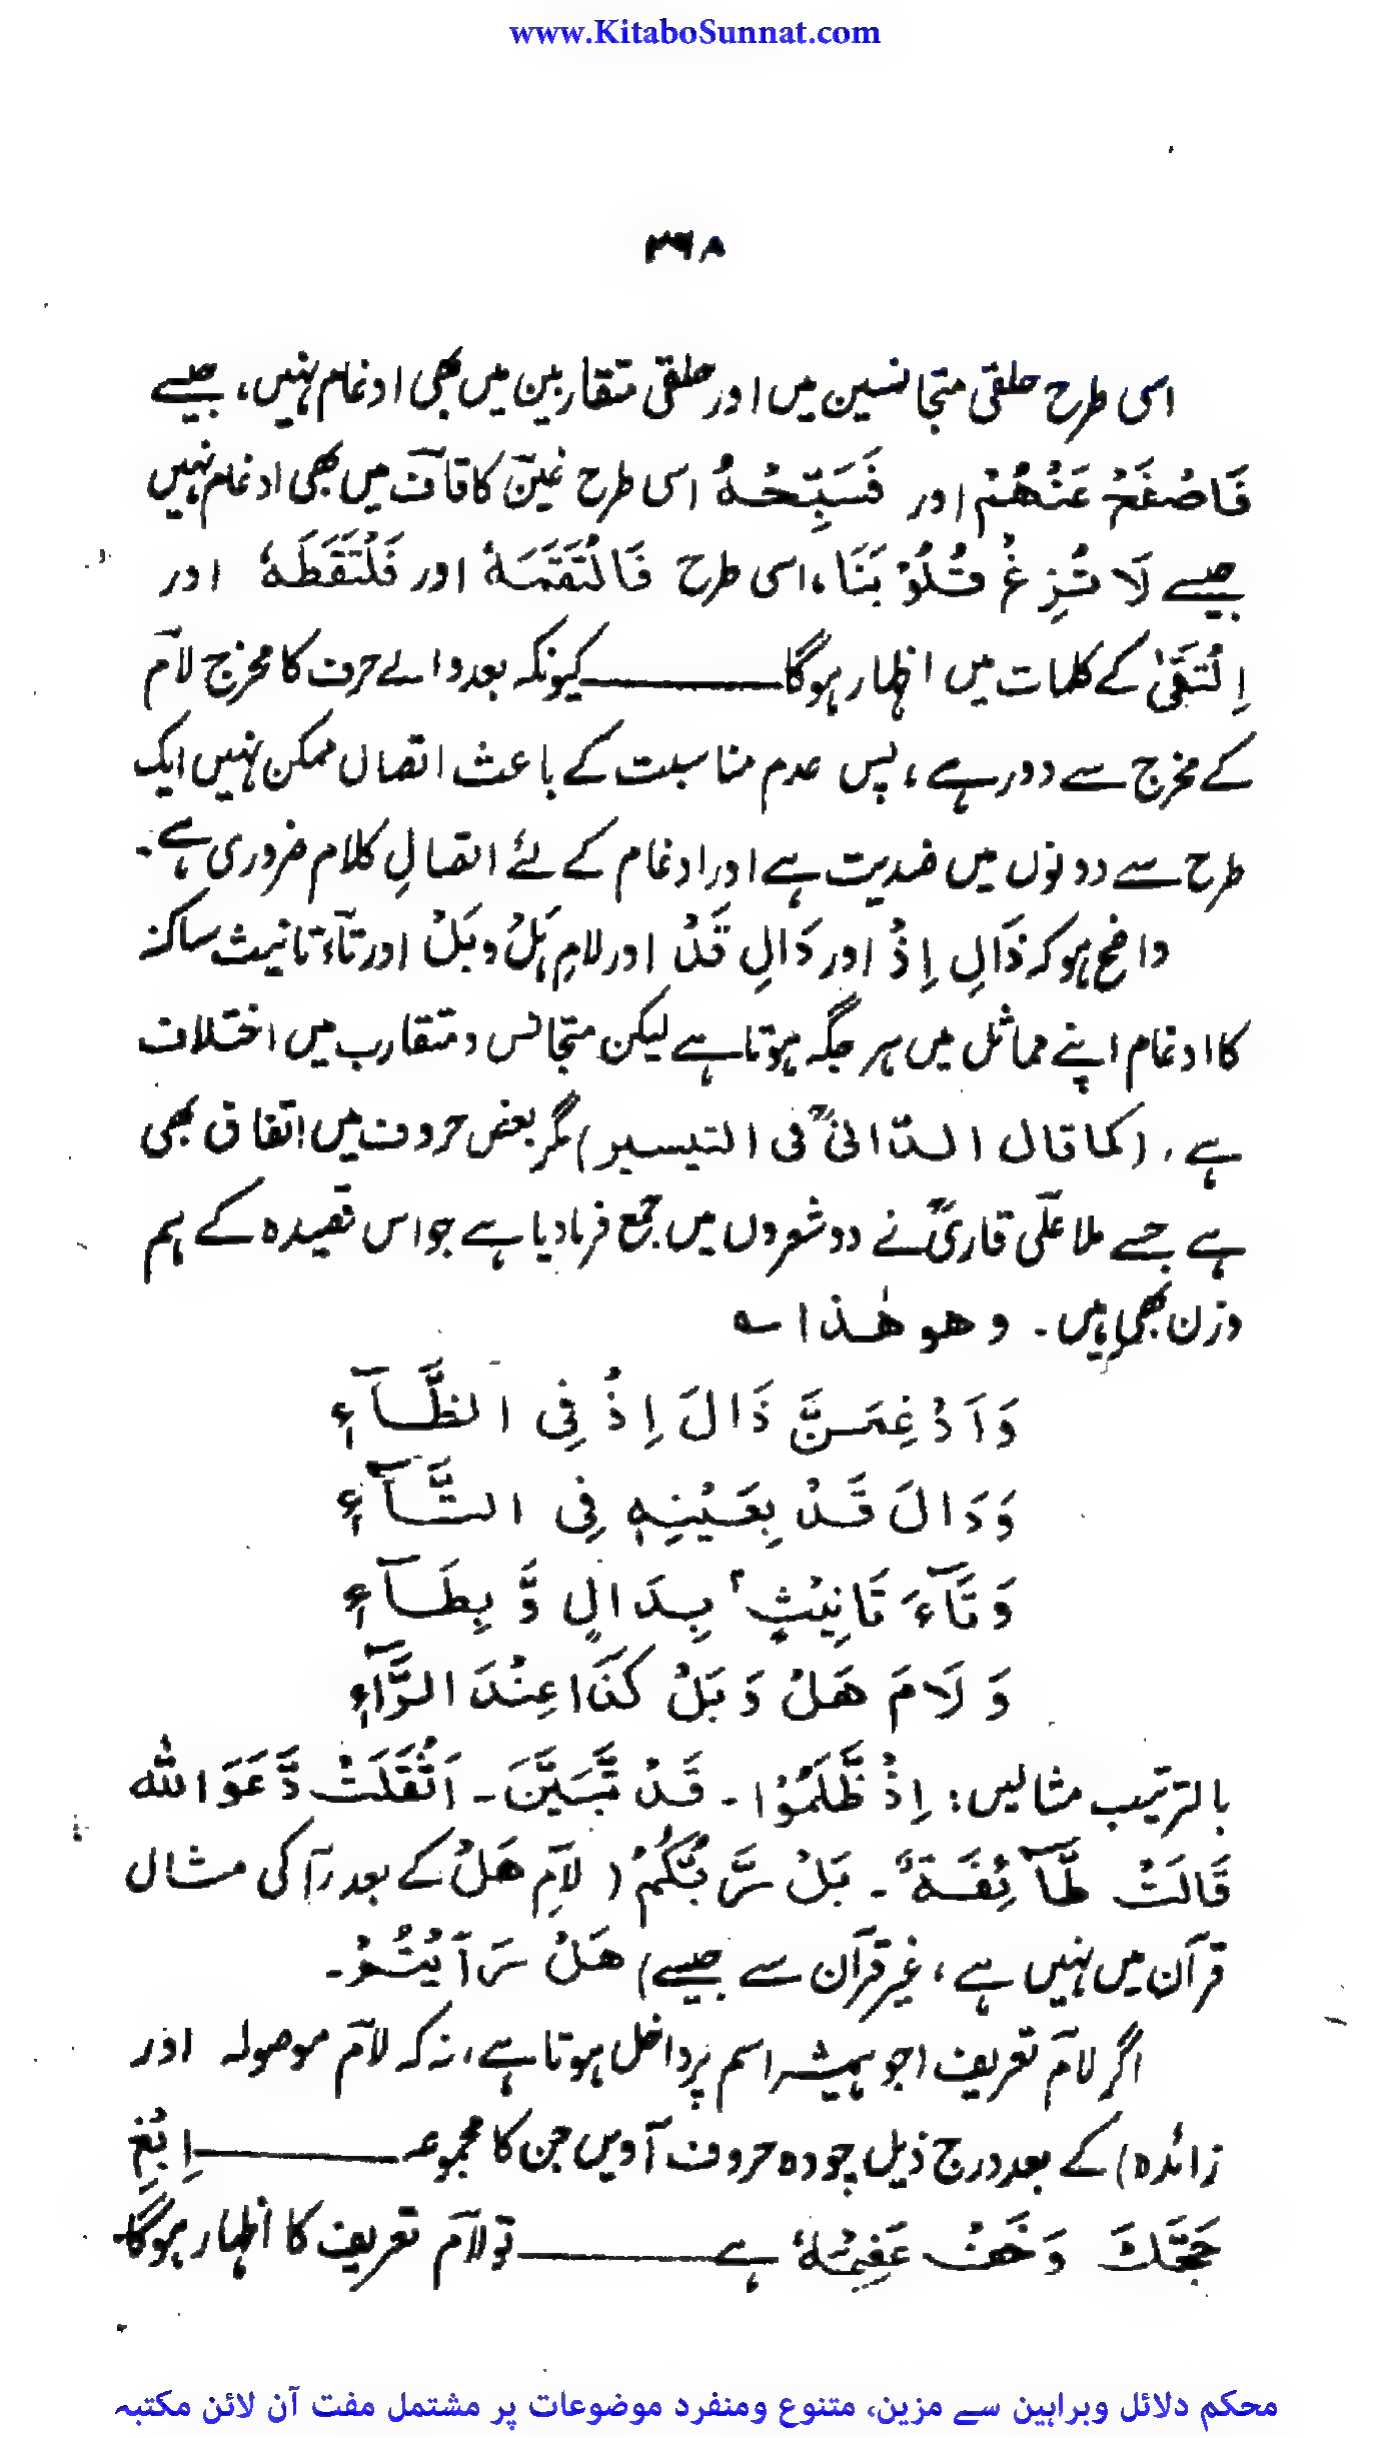 www.KitaboSunnat.com
۳۶۸
اسی طرح حلقی متجانسین میں اور حلقی متقاربین میں بھی ادغام نہیں، جیسے
فَاصْفَحْ عَنْهُمْ اور فَسَبِّحْهُ اسی طرح غین کا قاف میں بھی ادغام نہیں
جیسے لَا تُزِغْ قُلُوْبَنَا، اسی طرح فَالْتَقَمَهُ اور فَلْتَقَطَهٗ اور
اِلْتَقَىٰ کے کلمات میں اظہار ہوگا ــــــ کیونکہ بعد والے حرف کا مخرج لآم
کے مخرج سے دور ہے، پس عدم مناسبت کے باعث اتصال ممکن نہیں ایک
طرح سے دونوں میں ضدیت ہے اور ادغام کے لئے اتصالِ کلام ضروری ہے۔
واضح ہو کہ ذَالِ اِذْ اور دَالِ قَدْ اور لامِ ہَلْ و بَلْ اور تآء تانیث ساکنہ
کا ادغام اپنے مماثل میں ہر جگہ ہوتا ہے لیکن متجانس و متقارب میں اختلاف
ہے، (کما قال الدّانیؒ فی التیسیر) مگر بعض حروف میں اتفاق بھی
ہے جسے ملا علی قاریؒ نے دو شعروں میں جمع فرمادیا ہے جو اس قصیدہ کے ہم
وزن بھی ہیں۔ وهو هٰذا ؎
وَاَدْغِمَنَّ ذَالَ اِذْ فِی الظَّآءِ
وَدَالَ قَدْ بِعَیْنِهٖ فِی التَّآءِ
وَتَآءَ تَانِیْثٍ بِدَالٍ وَّ بِطَآءِ
وَ لَامَ هَلْ وَ بَلْ کَذَا عِنْدَ الرَّآءِ
بالترتیب مثالیں: اِذْ ظَّلَمُوْا ۔ قَدْ تَّبَیَّنَ ۔ اَثْقَلَتْ دَّعَوَا اللّٰه
قَالَتْ طَّآئِفَةٌ ۔ بَلْ رَّبُّکُمْ (لآمِ هَلْ کے بعد رآ کی مثال
قرآن میں نہیں ہے، غیر قرآن سے جیسے) هَلْ رَاَیْتُمْ۔
اگر لآم تعریف (جو ہمیشہ اسم پر داخل ہوتا ہے، نہ کہ لآم موصولہ اور
زائدہ) کے بعد درج ذیل چودہ حروف آویں جن کا مجموعہ ــــــ اِبْغِ
حَجَّكَ وَخَفْ عَقِیْمَهٗ ہے ــــــ تو لآم تعریف کا اظہار ہوگا۔
محکم دلائل وبراہین سے مزین، متنوع ومنفرد موضوعات پر مشتمل مفت آن لائن مکتبہ